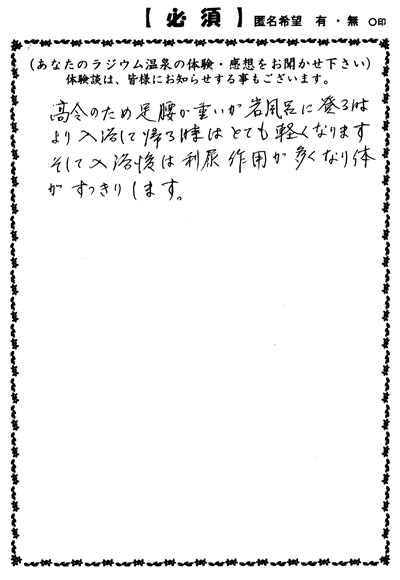 【必須】 匿名希望 有・無 ○印
(あなたのラジウム温泉の体験・感想をお聞かせ下さい)
体験談は、皆様にお知らせする事もございます。
高令のため足腰が重いが岩風呂に登る時は
より入浴して帰る時はとても軽くなります
そして入浴後は利尿作用が多くなり体
がすっきりします。